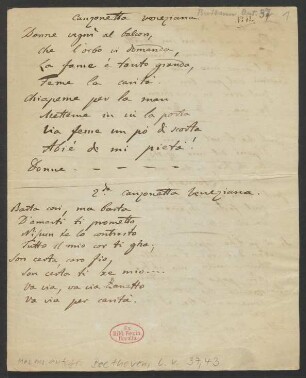 Canzonetta veneziana
37
1
Donne vegnì al balcon,
che l'orbo vi domanda,
La fame è tanto granda,
Feme la carità
Chiapeme per la man
Metteme in su la porta
Via feme un pò di scorta
Abiè de mi pietà!
Donne – – – –
2da Canzonetta Veneziana.
Batta così, ma basta
D'amarti ti prometto
Tutto il mio cor ti gha;
Son certa caro fio,
Son certa ti xe mio....
Va via, va via Zanetto
Va via per carità.
Ex
Biblioth. Regia
Berolin.
Beethoven
37,43.